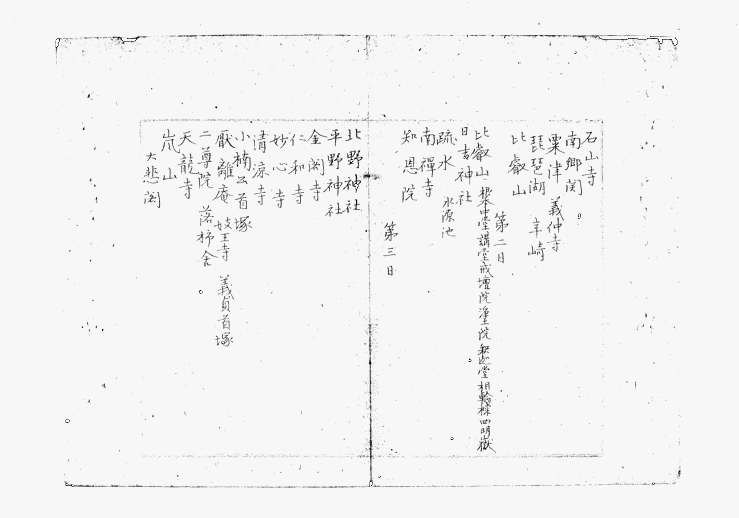 石山寺
南郷閘
粟津 義仲寺
琵琶湖 辛崎
比叡山
第二日
比叡山 根本中堂 講堂 戒壇院 浄土院 釈迦堂 相輪橖 四明嶽
日吉神社
疏水 水源池
南禅寺
知恩院
第三日
北野神社
平野神社
金閣寺
仁和寺
妙心寺
清涼寺
小楠公首塚
厭離庵 妓王寺 義貞首塚
二尊院 落柿舎
天龍寺
嵐山
大悲閣